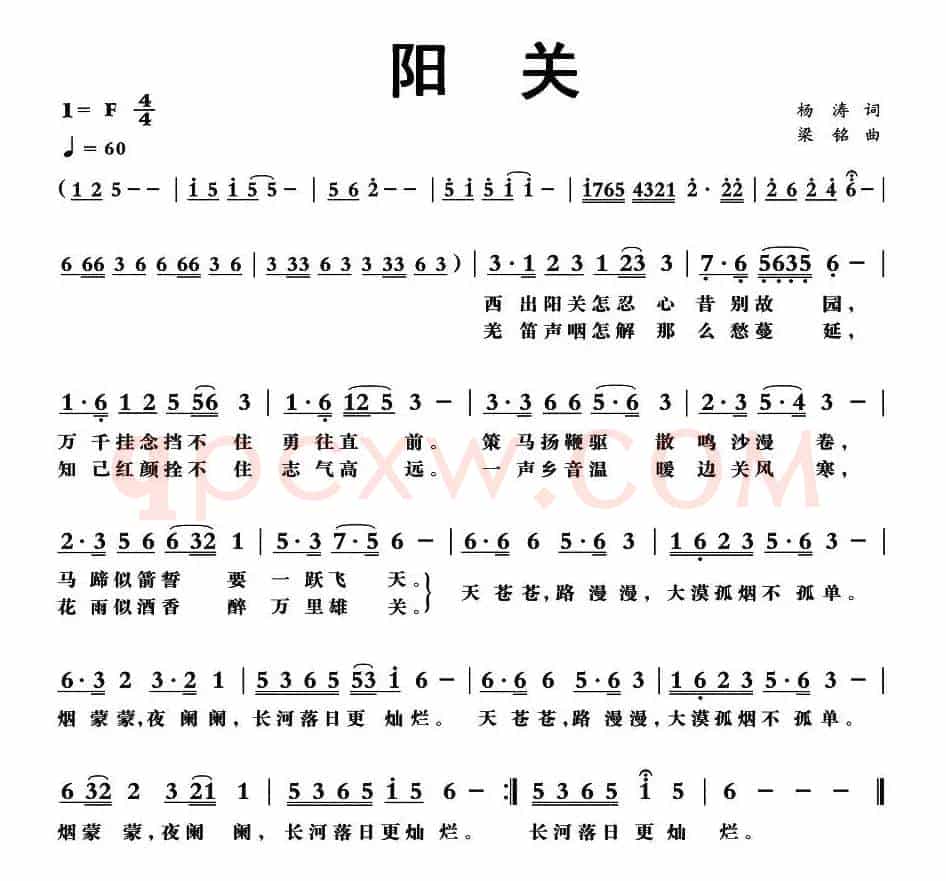 阳 关
1= F 4/4
杨 涛 词
♩= 60
梁 铭 曲
( 1 2 5 - - | i 5 i 5 5 - | 5 6 2 - - | 5 i 5 i i - | i765 4321 2 · 22 | 2 6 2 4 6 - |
6 66 3 6 6 66 3 6 | 3 33 6 3 3 33 6 3 ) | 3 · 1 2 3 1 23 3 | 7 · 6 5635 6 - |
西 出 阳 关 怎 忍 心 昔 别 故 园，
羌 笛 声 咽 怎 解 那 么 愁 蔓 延，
1 · 6 1 2 5 56 3 | 1 · 6 12 5 3 - | 3 · 3 6 6 5 · 6 3 | 2 · 3 5 · 4 3 - |
万 千 挂 念 挡 不 住 勇 往 直 前。 策 马 扬 鞭 驱 散 鸣 沙 漫 卷，
知 己 红 颜 拴 不 住 志 气 高 远。 一 声 乡 音 温 暖 边 关 风 寒，
qpcxw.com
2 · 3 5 6 6 32 1 | 5 · 3 7 · 5 6 - | 6 · 6 6 5 · 6 3 | 1 6 2 3 5 · 6 3 - |
马 蹄 似 箭 誓 要 一 跃 飞 天。
花 雨 似 酒 香 醉 万 里 雄 关。
天 苍 苍，路 漫 漫，大 漠 孤 烟 不 孤 单。
6 · 3 2 3 · 2 1 | 5 3 6 5 53 i 6 - | 6 · 6 6 5 · 6 3 | 1 6 2 3 5 · 6 3 - |
烟 蒙 蒙，夜 阑 阑，长 河 落 日 更 灿 烂。 天 苍 苍，路 漫 漫，大 漠 孤 烟 不 孤 单。
6 32 2 3 21 1 | 5 3 6 5 i 5 6 - :| 5 3 6 5 i 5 | 6 - - - ‖
烟 蒙 蒙，夜 阑 阑，长 河 落 日 更 灿 烂。 长 河 落 日 更 灿 烂。